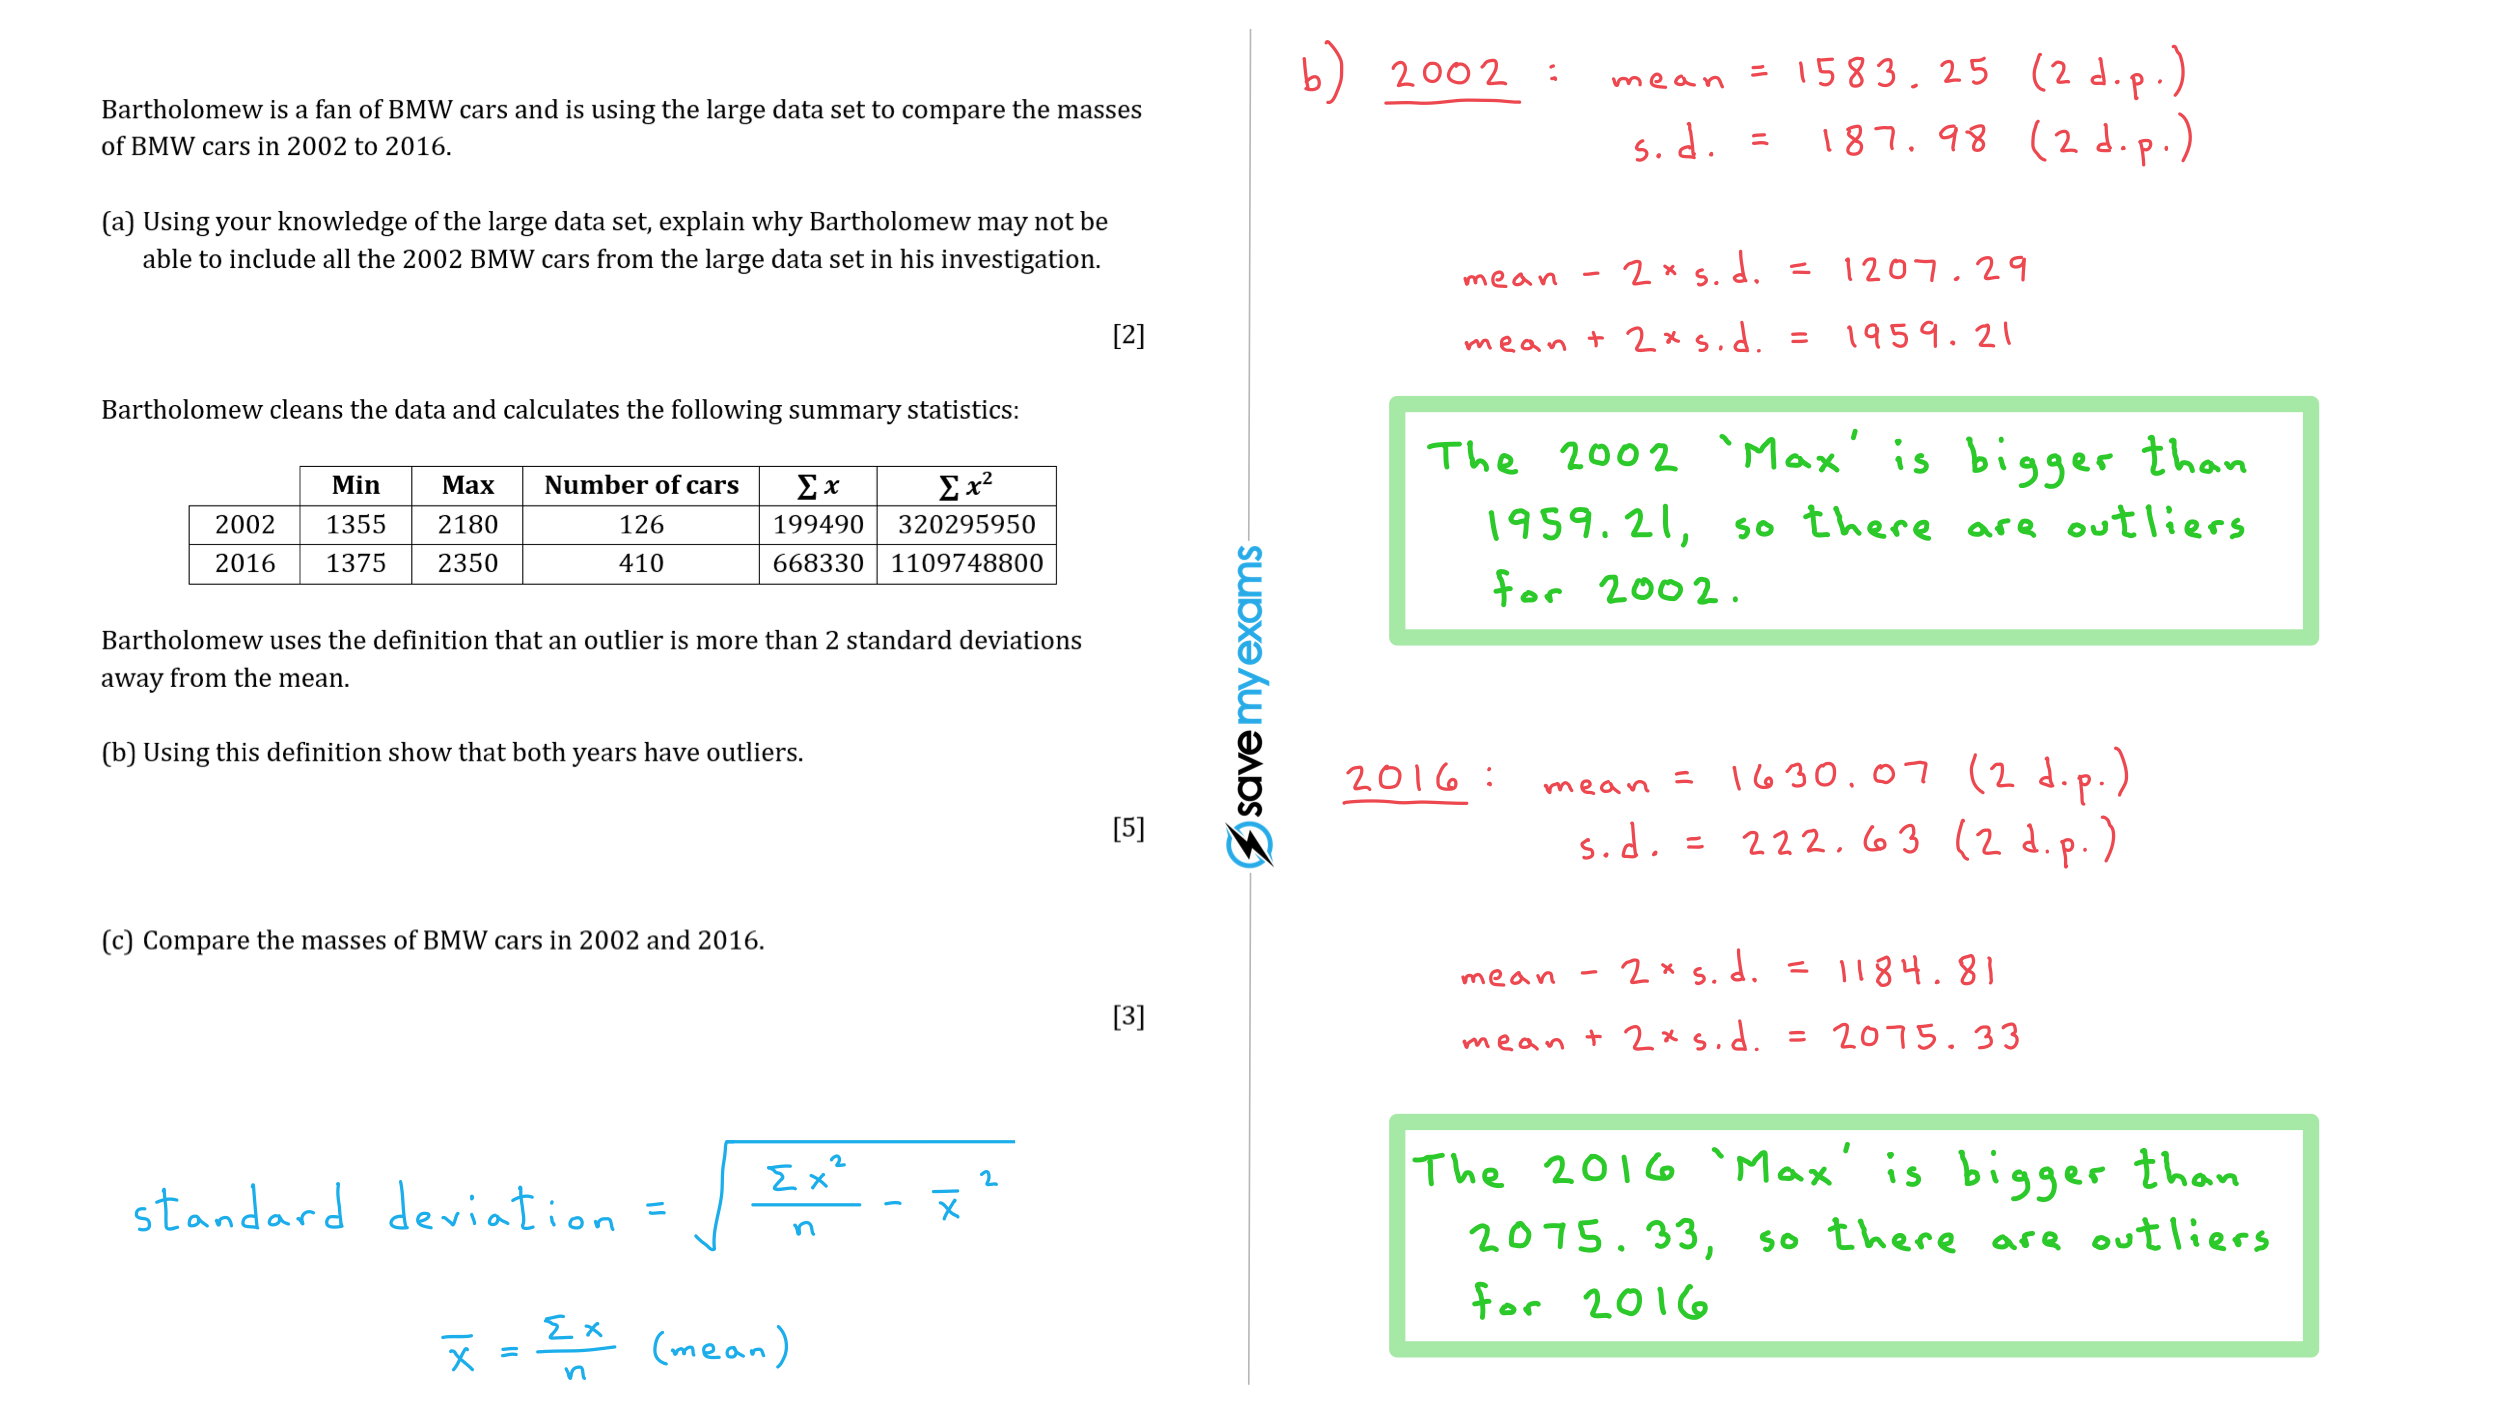 Bartholomew is a fan of BMW cars and is using the large data set to compare the masses
of BMW cars in 2002 to 2016.
(a) Using your knowledge of the large data set, explain why Bartholomew may not be
able to include all the 2002 BMW cars from the large data set in his investigation.
[2]
Bartholomew cleans the data and calculates the following summary statistics:
Min Max Number of cars ∑ x ∑ x²
2002 1355 2180 126 199490 320295950
2016 1375 2350 410 668330 1109748800
Bartholomew uses the definition that an outlier is more than 2 standard deviations
away from the mean.
(b) Using this definition show that both years have outliers.
[5]
(c) Compare the masses of BMW cars in 2002 and 2016.
[3]
standard deviation = √(Σx²/n - x̄²)
x̄ = Σx/n (mean)
save my exams
b) 2002 : mean = 1583.25 (2 d.p.)
s.d. = 187.98 (2 d.p.)
mean - 2 × s.d. = 1207.29
mean + 2 × s.d. = 1959.21
The 2002 'Max' is bigger than
1959.21, so there are outliers
for 2002.
2016 : mean = 1630.07 (2 d.p.)
s.d. = 222.63 (2 d.p.)
mean - 2 × s.d. = 1184.81
mean + 2 × s.d. = 2075.33
The 2016 'Max' is bigger than
2075.33, so there are outliers
for 2016